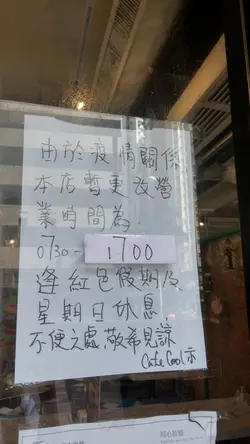 由於疫情關係
本店暫更改營
業時間為
0730-1700
逢紅色假期及
星期日休息,
不便之處,敬希見諒
Cafe Cool 示